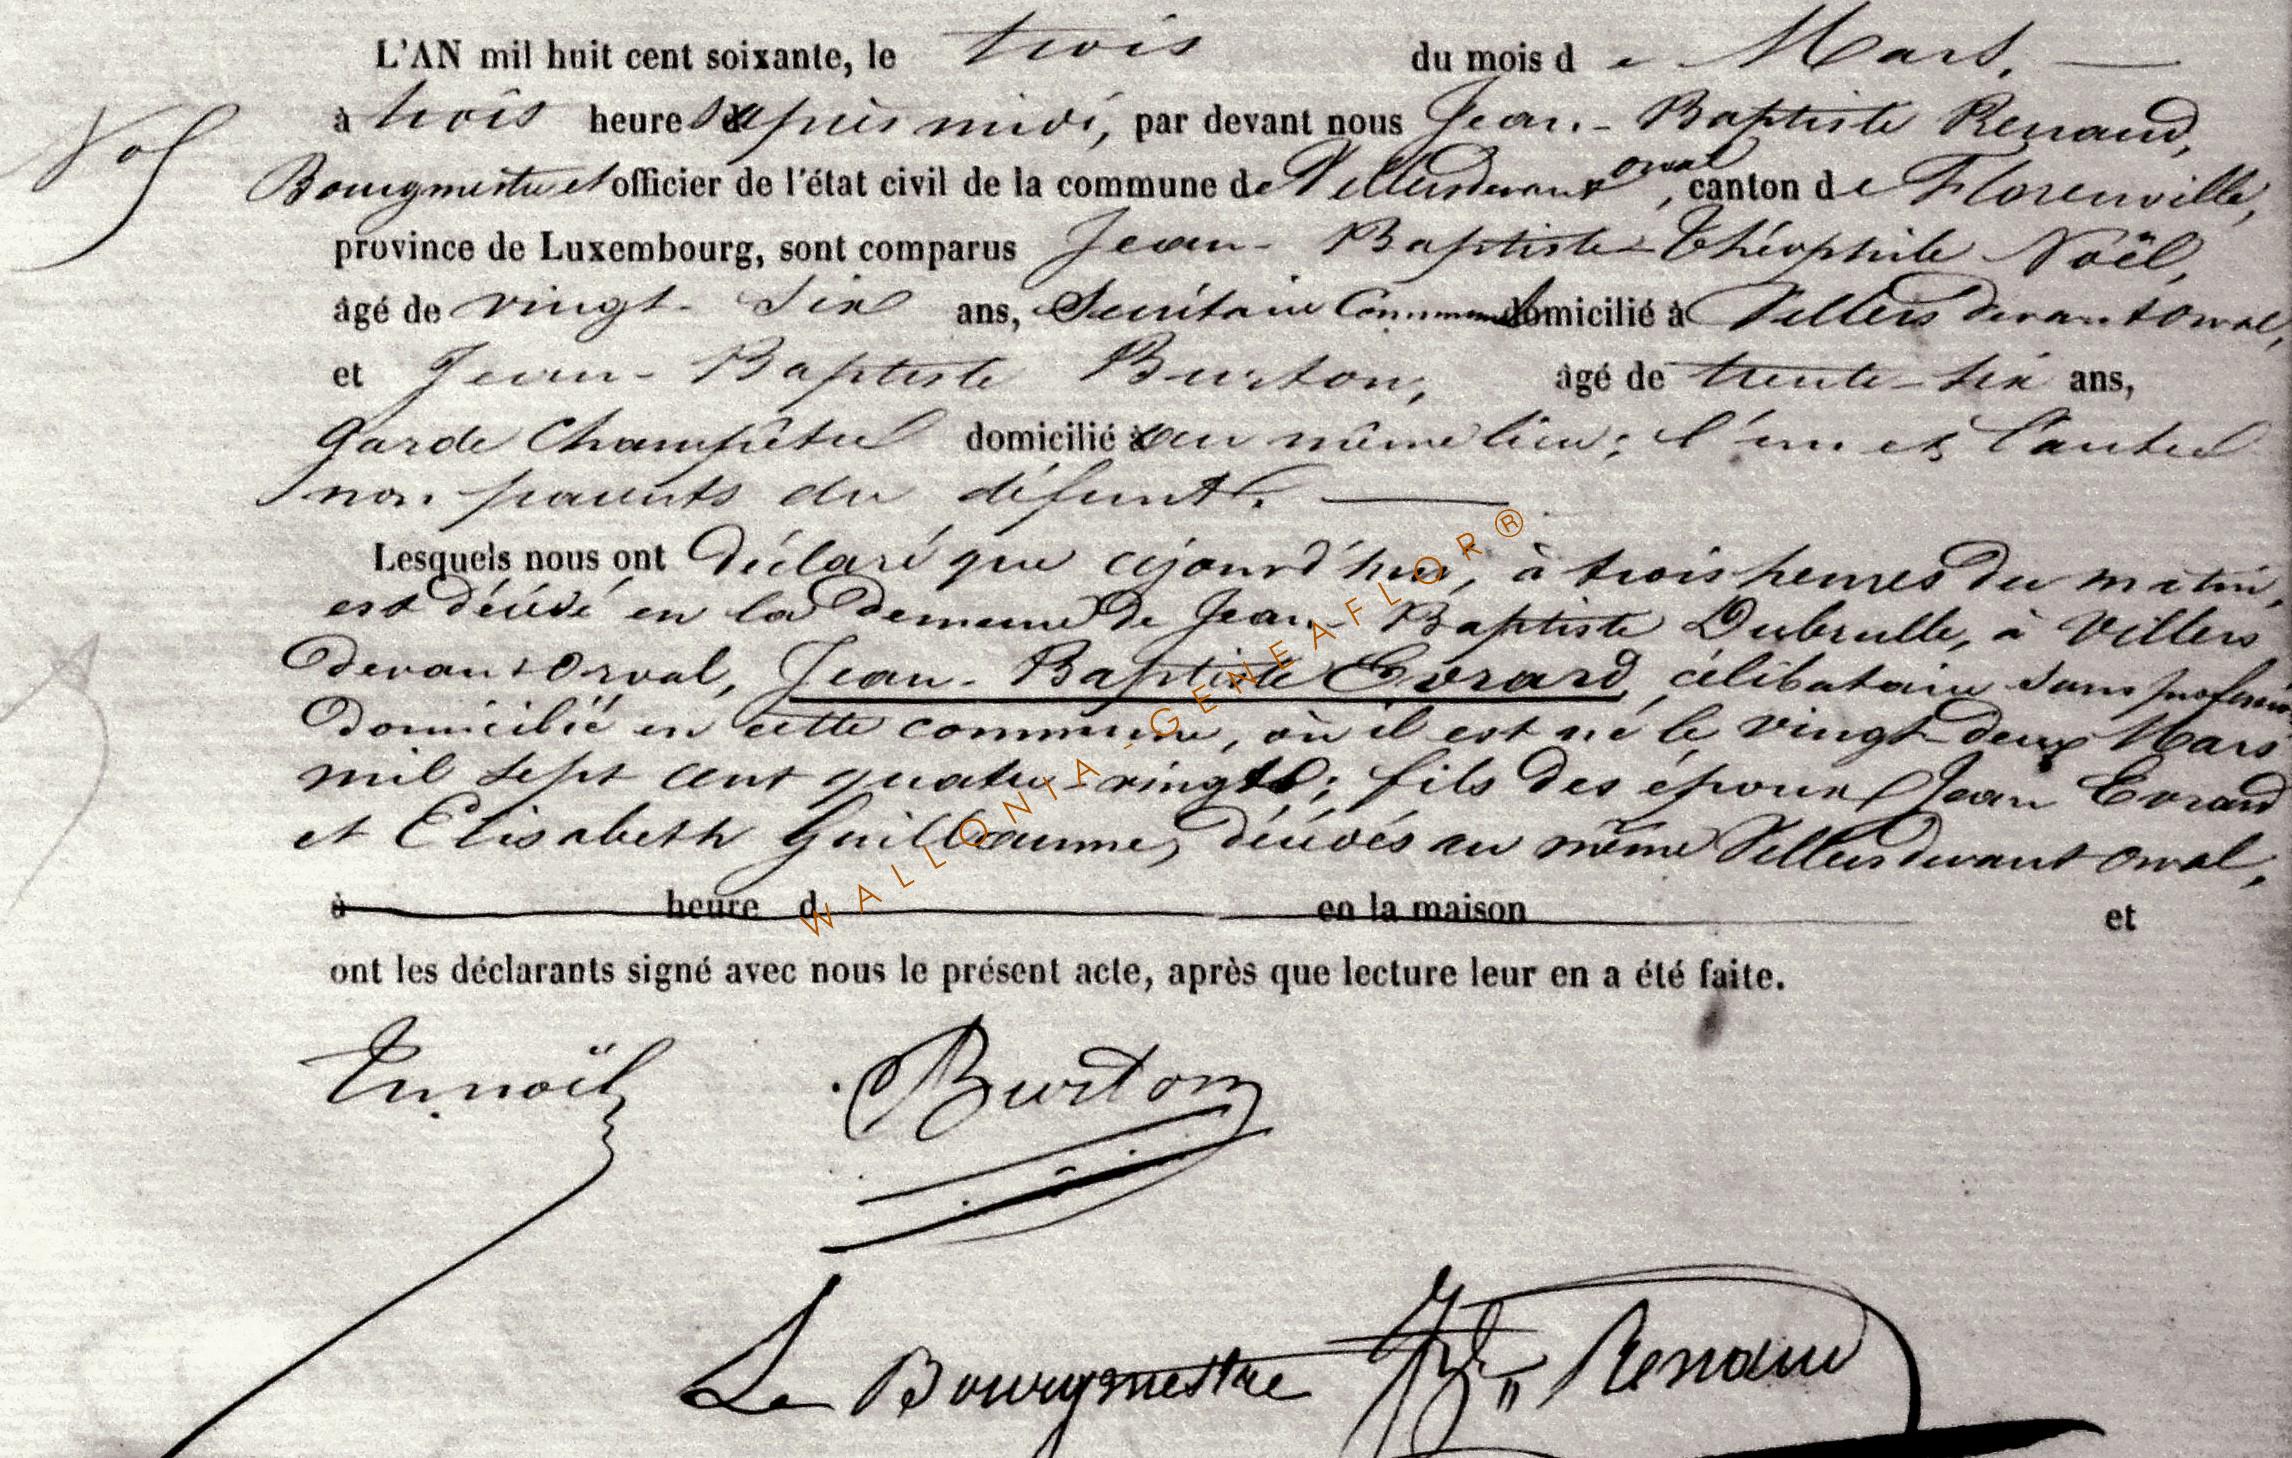 L'AN mil huit cent soixante, le trois du mois de Mars.
à trois heures après midi, par devant nous Jean-Baptiste Renaud,
Bourgmestre et officier de l'état civil de la commune de Villers devant orval, canton de Florenville,
province de Luxembourg, sont comparus Jean-Baptiste-Théophile Noël,
âgé de vingt-six ans, Secrétaire Communal domicilié à Villers devant orval,
et Jean-Baptiste Burton, âgé de trente-six ans,
garde Champêtre domicilié au même lieu; l'un et l'autre
non parents du défunt.
Lesquels nous ont déclaré que cejourd'hui, à trois heures du matin,
est décédé en la demeure de Jean-Baptiste Dubrulle, à Villers
devant Orval, Jean-Baptiste Evrard, célibataire sans profession
domicilié en cette commune, où il est né le vingt deux Mars
mil sept cent quatre-vingt; fils des époux Jean Evrard
et Elisabeth Guillaume, décédés au même Villers devant orval,
à heure d en la maison et
ont les déclarants signé avec nous le présent acte, après que lecture leur en a été faite.
noël Burton
Le Bourgmestre Renaud
WALLONIA-GENEAFLOR®